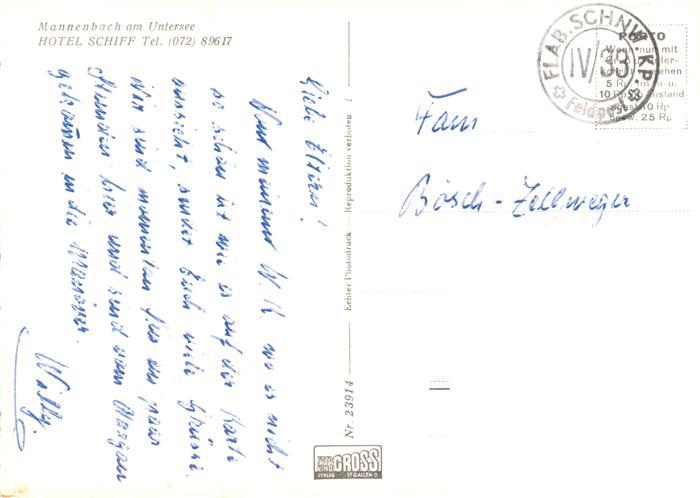 Mannenbach am Untersee
HOTEL SCHIFF Tel. (072) 89617
Liebe Eltern!
Aus meinem W.K. wo es nicht
so schön ist wie es auf der Karte
aussieht, sendet Euch viele Grüsse.
Wir sind momentan für ein paar
Stunden hier und sind vom Aargau
gekommen in die Manöver.
Willy.
Nr. 23914 — Echter Photodruck — Reproduktion verboten
FOTO UND GROSS
VERLAG ST. GALLEN
FLAB. SCHNW. KP.
IV/33
Feldpost
PORTO
Wenn nur mit
5 Rp. im
10 Rp. Ausland
10 Rp.
bzw. 25 Rp.
Fam
Bösch-Zellweger